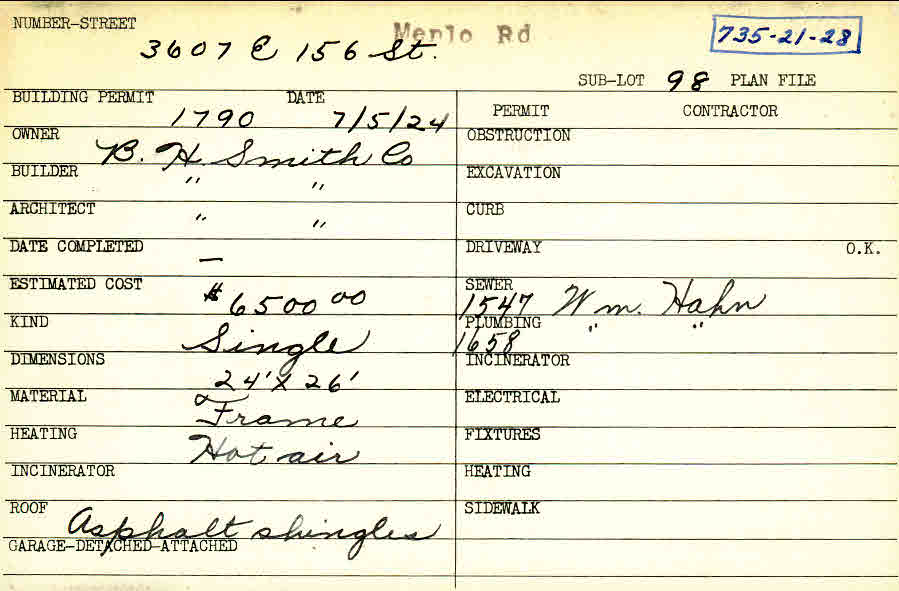 NUMBER-STREET
3607 E 156 St.
Menlo Rd
735-21-28
SUB-LOT 98 PLAN FILE
BUILDING PERMIT DATE
1790 7/5/24
PERMIT CONTRACTOR
OWNER B. H. Smith Co
OBSTRUCTION
BUILDER " "
EXCAVATION
ARCHITECT " "
CURB
DATE COMPLETED —
DRIVEWAY O.K.
ESTIMATED COST $6500 00
SEWER
1547 Wm. Hahn
KIND Single
PLUMBING " "
1658
DIMENSIONS 24' X 26'
INCINERATOR
MATERIAL Frame
ELECTRICAL
HEATING Hot air
FIXTURES
INCINERATOR
HEATING
ROOF Asphalt shingles
SIDEWALK
GARAGE-DETACHED-ATTACHED